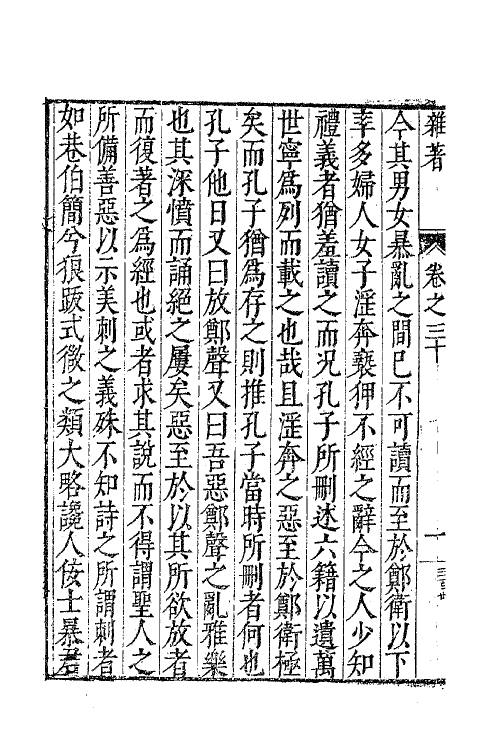 雜著 卷之三十 一
今其男女暴亂之間已不可讀而至於鄭衛以下
率多婦人女子淫奔褻狎不經之辭今之人少知
禮義者猶羞讀之而况孔子所刪述六籍以遺萬
世寧爲列而載之也哉且淫奔之惡至於鄭衛極
矣而孔子猶爲存之則推孔子當時所刪者何也
孔子他日又曰放鄭聲又曰吾惡鄭聲之亂雅樂
也其深憤而誦絕之屢矣惡至於以其所欲放者
而復著之爲經也或者求其說而不得謂聖人之
所備善惡以示美刺之義殊不知詩之所謂刺者
如巷伯簡兮狼跋式微之類大略讒人佞士暴君